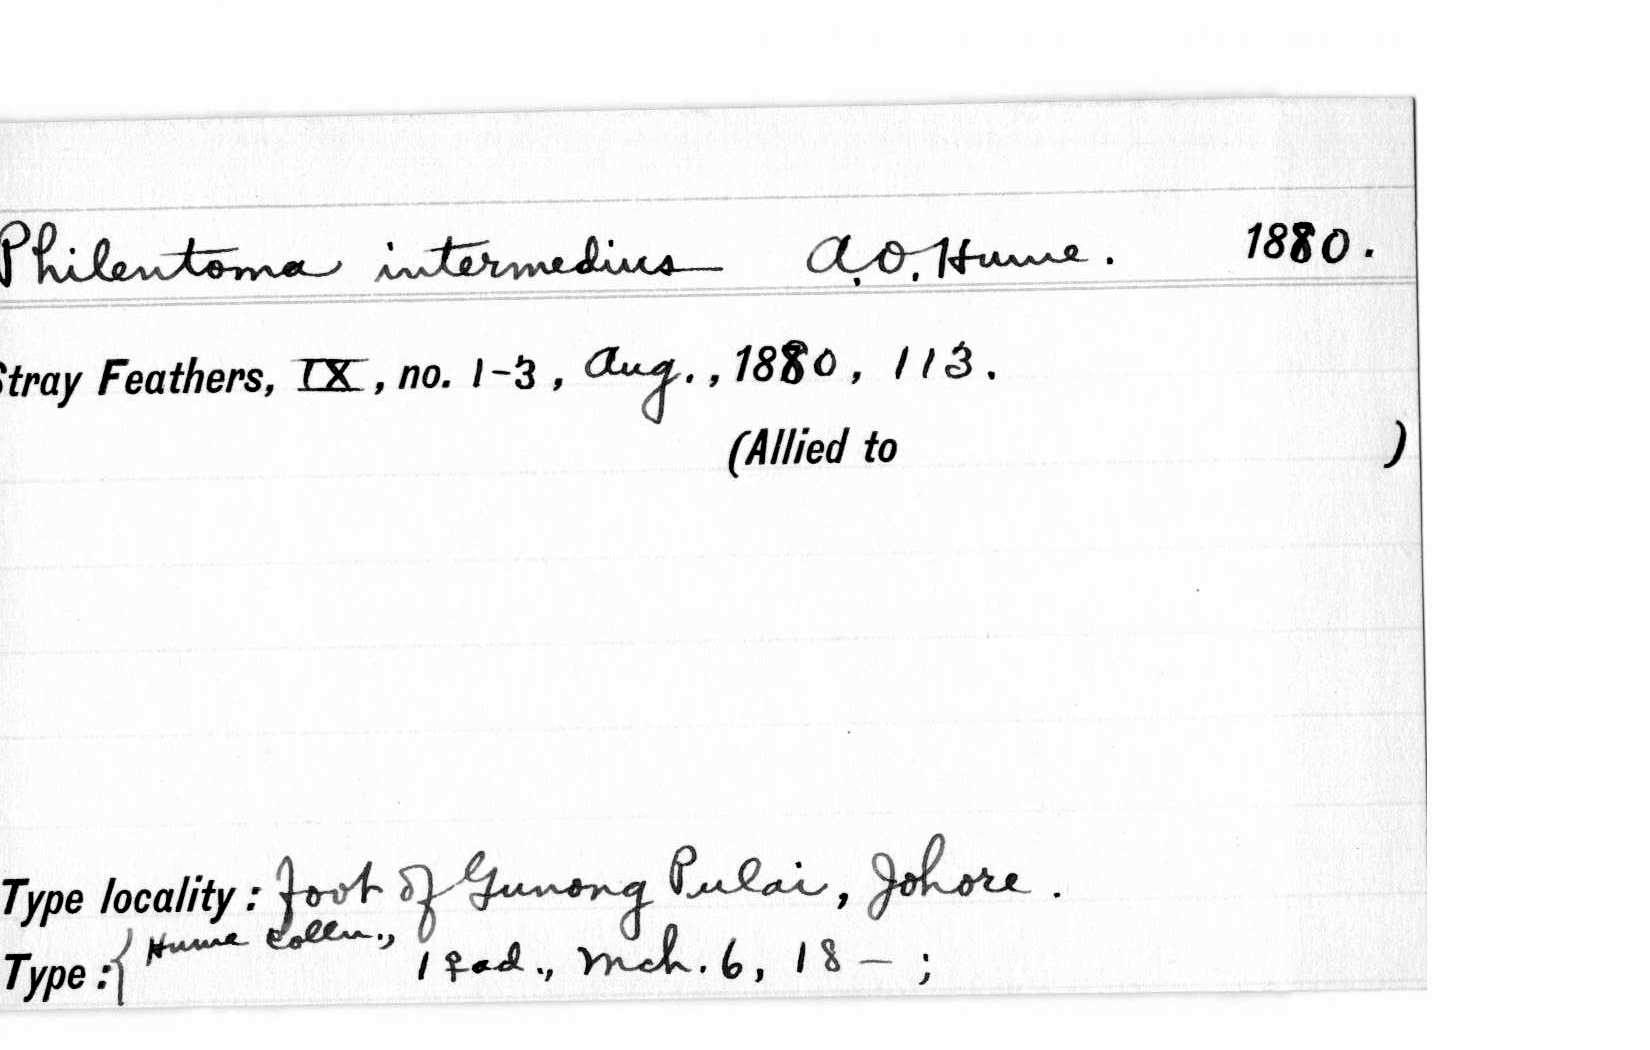 Philentoma intermedius A.O. Hume. 1880.
Stray Feathers, IX, no. 1-3, Aug., 1880, 113.
(Allied to )
Type locality: foot of Gunong Pulai, Johore.
Type: { Hume Colln.,
1 ♀ ad., Mch. 6, 18 – ;